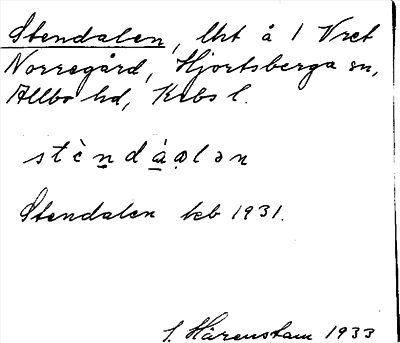 Stendalen, lht å 1 Vret
Norregård, Hjortsberga sn,
Allbo hd, Krbs l.
stènd
Stendalen kb 1931.
S. Härenstam 1933